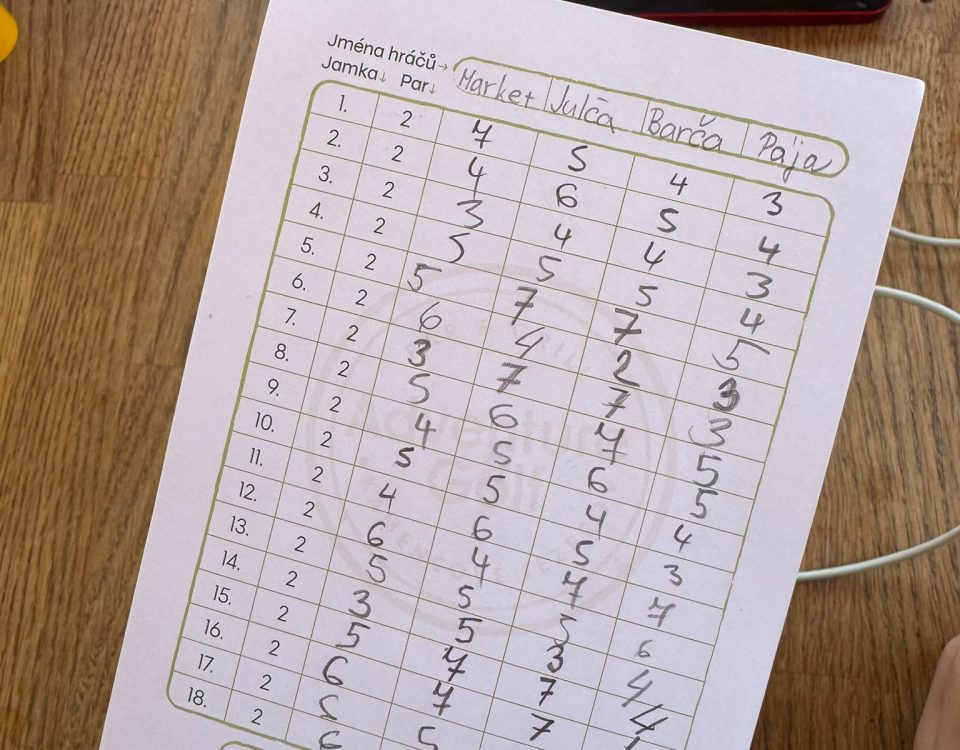 Jména hráčů→ Market Julča Barča Pája
Jamka↓ Par↓
1. 2 7 5 4 3
2. 2 4 6 5 4
3. 2 3 4 4 3
4. 2 5 5 5 4
5. 2 5 7 7 5
6. 2 6 4 2 3
7. 2 3 7 7 3
8. 2 5 6 7 5
9. 2 4 5 6 5
10. 2 5 5 4 4
11. 2 4 6 5 3
12. 2 6 4 7 7
13. 2 5 5 5 6
14. 2 3 5 3 4
15. 2 5 7 7 4
16. 2 6 7 7
17. 2 5 5
18. 2